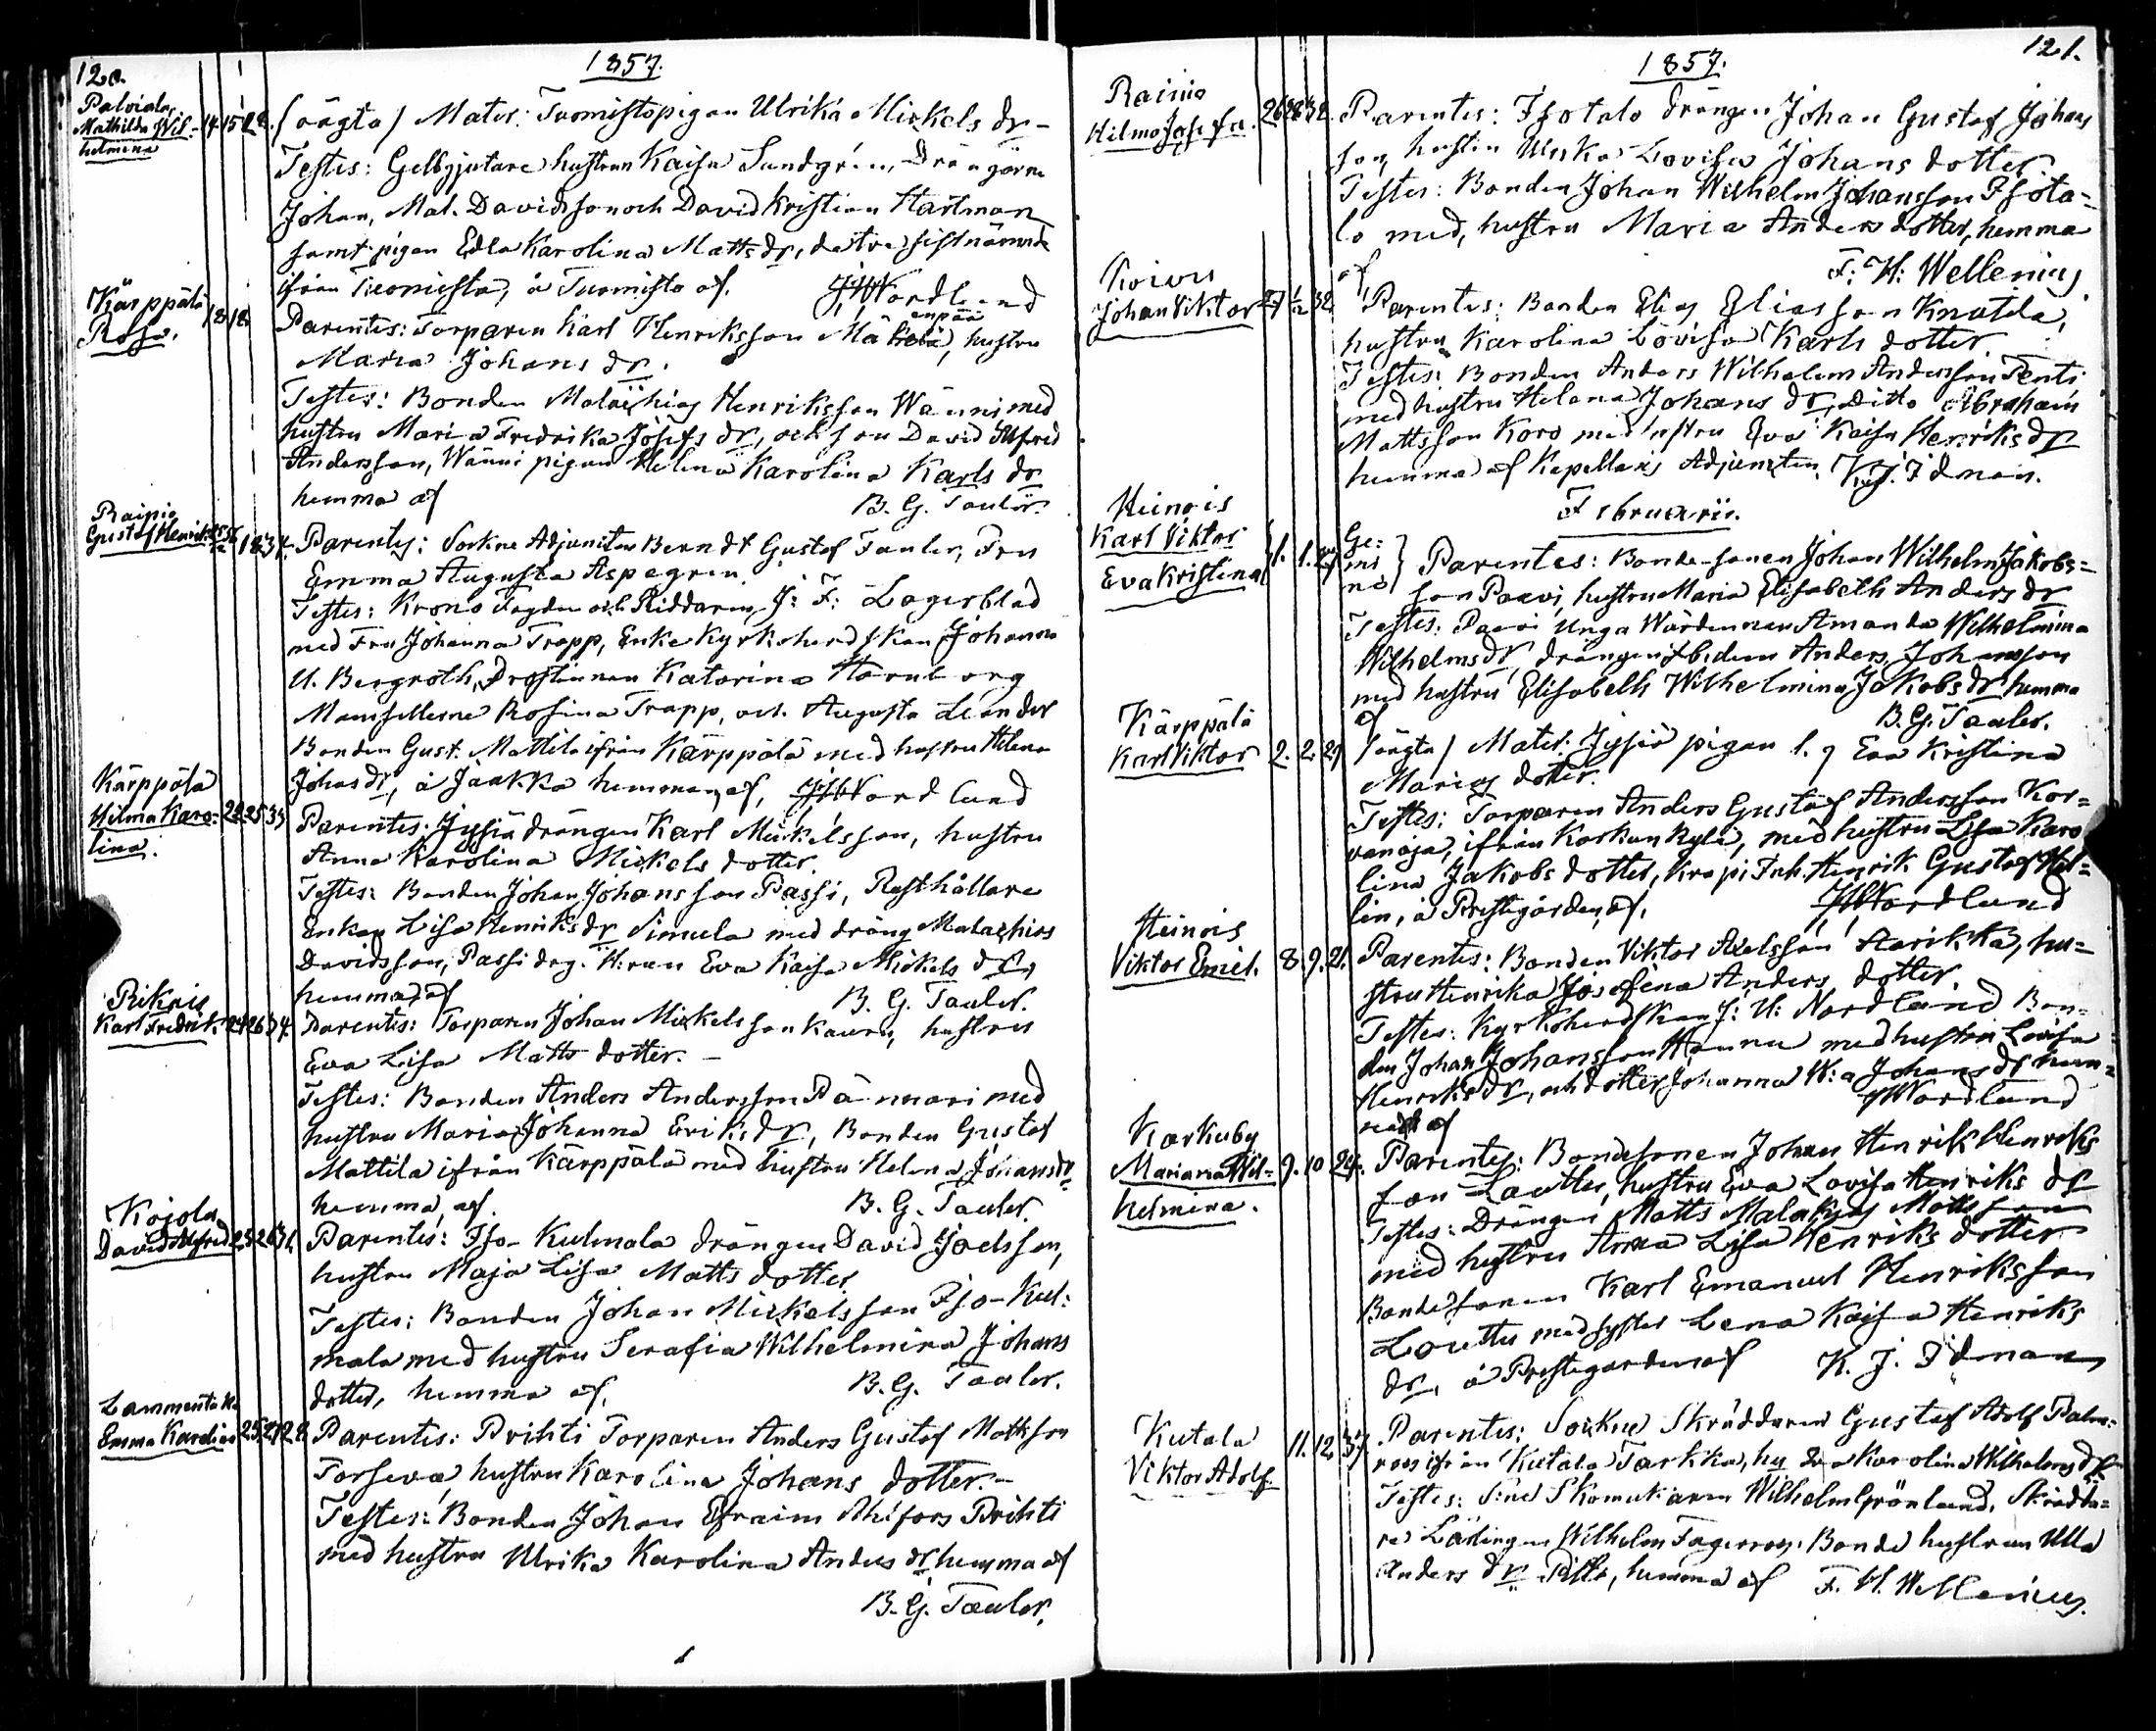 120.
1857.
Palviala
Mathilda Wil-
helmina
14. 15. 28.
(oägta) Mater: Tuomistopigan Ulrika Mickels dr -
Testes: Gelbgjutare hustrun Kaisa Sundgrén, Drängarne
Johan, Mal. Davidsson och David Kristian Hartman
samt pigan Edla Karolina Matts dr, de tre sistnämnde
ifrån Tuomisto, å Tuomisto af. JWNordlund
Kärppälä
Rosa.
18. 18.
Parentes: Torparen Karl Henriksson Mäkelä, hustru
enpää
Maria Johans dr.
Testes: Bonden Malachias Henriksson Wänni med
hustru Maria Fredrika Josefs dr, och son David Alfred
Andersson, Wänni pigan Helena Karolina Karls dr
hemma af B. G. Tauler.
Raipio
Gustaf Henrik
Parentes: Sockne Adjunkten Berndt Gustaf Tauler, Fru
Emma Augusta Aspegren.
Testes: Krono Fogden och Riddaren J: F: Lagerblad
med Fru Johanna Trapp, Enke Kyrkoherdskan Johanna
U. Bergroth, Prostinnan Katarina Hornborg
Mamsellerne Rosina Trapp, och Augusta Leander
Bonden Gust. Mattila ifrån Kärppälä med hustru Helena
Johans dr, å Jaakka hemman, af, JWNordlund
Kärppälä
Hilma Karo-
lina.
22. 25. 35
Parentes: Jyssiä drängen Karl Mickelsson, hustru
Anna Karolina Mickels dotter.
Testes: Bonden Johan Johansson Passi, Rusthållare
Enkan Lisa Henriks dr Simula med dräng Malachias
Davidsson, Passi drg. H:run Eva Kaisa Mickels dr,
hemma af B. G. Tauler.
Riknis
Karl Fredrik
24. 26. 34.
Parentes: Torparen Johan Mickelsson Kauru, hustru
Eva Lisa Matts dotter. -
Testes: Bonden Anders Andersson Pännäri med
hustru Maria Johanna Eriks dr, Bonden Gustaf
Mattila ifrån Kärppälä med hustru Helena Johans dr
hemma, af. B. G. Tauler.
Kojola
David Alfred
23. 26.
Parentes: Iso-Kulmala drängen David Joelsson,
hustru Maja Lisa Matts dotter.
Testes: Bonden Johan Mickelsson Iso-Kul:
mala med hustru Serafia Wilhelmina Johans
dotter, hemma af. B. G. Tauler.
Lammentaka
Emma Karolina
25. 27. 28.
Parentes: Prihti Torparen Anders Gustaf Mattsson
Torseva, hustru Karolina Johans dotter. -
Testes: Bonden Johan Efraim Ahlfors Prihti
med hustru Ulrika Karolina Anders dr hemma af
B. G. Tauler.
121.
1857.
Rainio
Hilma Josefa.
26. 28. 32.
Parentes: Isotalo drängen Johan Gustaf Johans
son, hustru Ulrika Lovisa Johans dotter.
Testes: Bonden Johan Wilhelm Johansson Isota-
lo med, hustru Maria Anders dotter, hemma
af, F: H: Wellenius
Koivu
Johan Viktor
27. 1/2 32.
Parentes: Bonden Elias Eliasson Knutila,
hustru Karolina Lovisa Karls dotter.
Testes: Bonden Anders Wilhelm Andersson Penti
med hustru Helena Johans dr, Ditto Abraham
Mattsson Koro med hustru Eva Kaisa Henriks dr
hemma af Kapellans Adjunkten K. J. Idman.
Februarii.
Heinois
Karl Viktor
Eva Kristina
1. 1. 27
Ge:
mi
ni }
Parentes: Bonde-sonen Johan Wilhelm Jakobs-
son Paavi, hustru Maria Elisabeth Anders dr
Testes: Paavi Unga Wärdinnan Amanda Wilhelmina
Wilhelms dr, drängen ibidem Anders Johansson
med hustru Elisabeth Wilhelmina Jakobs dr hemma
af B. G. Tauler.
Kärppälä
Karl Viktor
2. 2. 29
(oägta) Mater: Jyssiä pigan l. g Eva Kristina
Marias dotter.
Testes: Torparen Anders Gustaf Andersson Kor-
vanoja, ifrån Korkunkylä, med hustru Lisa Karo
lina Jakobs dotter, Krapi Inh. Henrik Gustaf Hel-
lin, å Prestgården, af. JWNordlund
Heinois
Viktor Emil.
8. 9. 21.
Parentes: Bonden Viktor Axelsson Harikka, hu-
stru Henrika Josefina Anders dotter.
Testes: Kyrkoherdskan J: U: Nordlund Bon-
den Johan Johansson Hannu med hustru Lovisa
Henriks dr, och dotter Johanna W:a Johans dr hem-
ma af JWNordlund
Karkuby
Mariana Wil-
helmina.
9. 10. 24.
Parentes: Bondesonen Johan Henrik Henriks
son Lauttu, hustru Eva Lovisa Henriks dr
Testes: Drängen Matts Malakias Mattsson
med hustru Anna Lisa Henriks dotter
Bondesonen Karl Emanuel Henriksson
Lauttu med syster Lena Kaisa Henriks
dr, å Prestegården af K. J. Idman
Kutala
Viktor Adolf
11. 12. 37
Parentes: Sockne Skräddaren Gustaf Adolf Palm-
roos ifrån Kutala Tarkka, hu Eva Karolina Wilhelms dr
Testes: S:ne Skomakaren Wilhelm Grönlund, Skrädda-
re Lärlingen Wilhelm Fagerroos. Bonde hustrun Ulla
Anders dr Pitto, hemma af F. H. Wellenius.